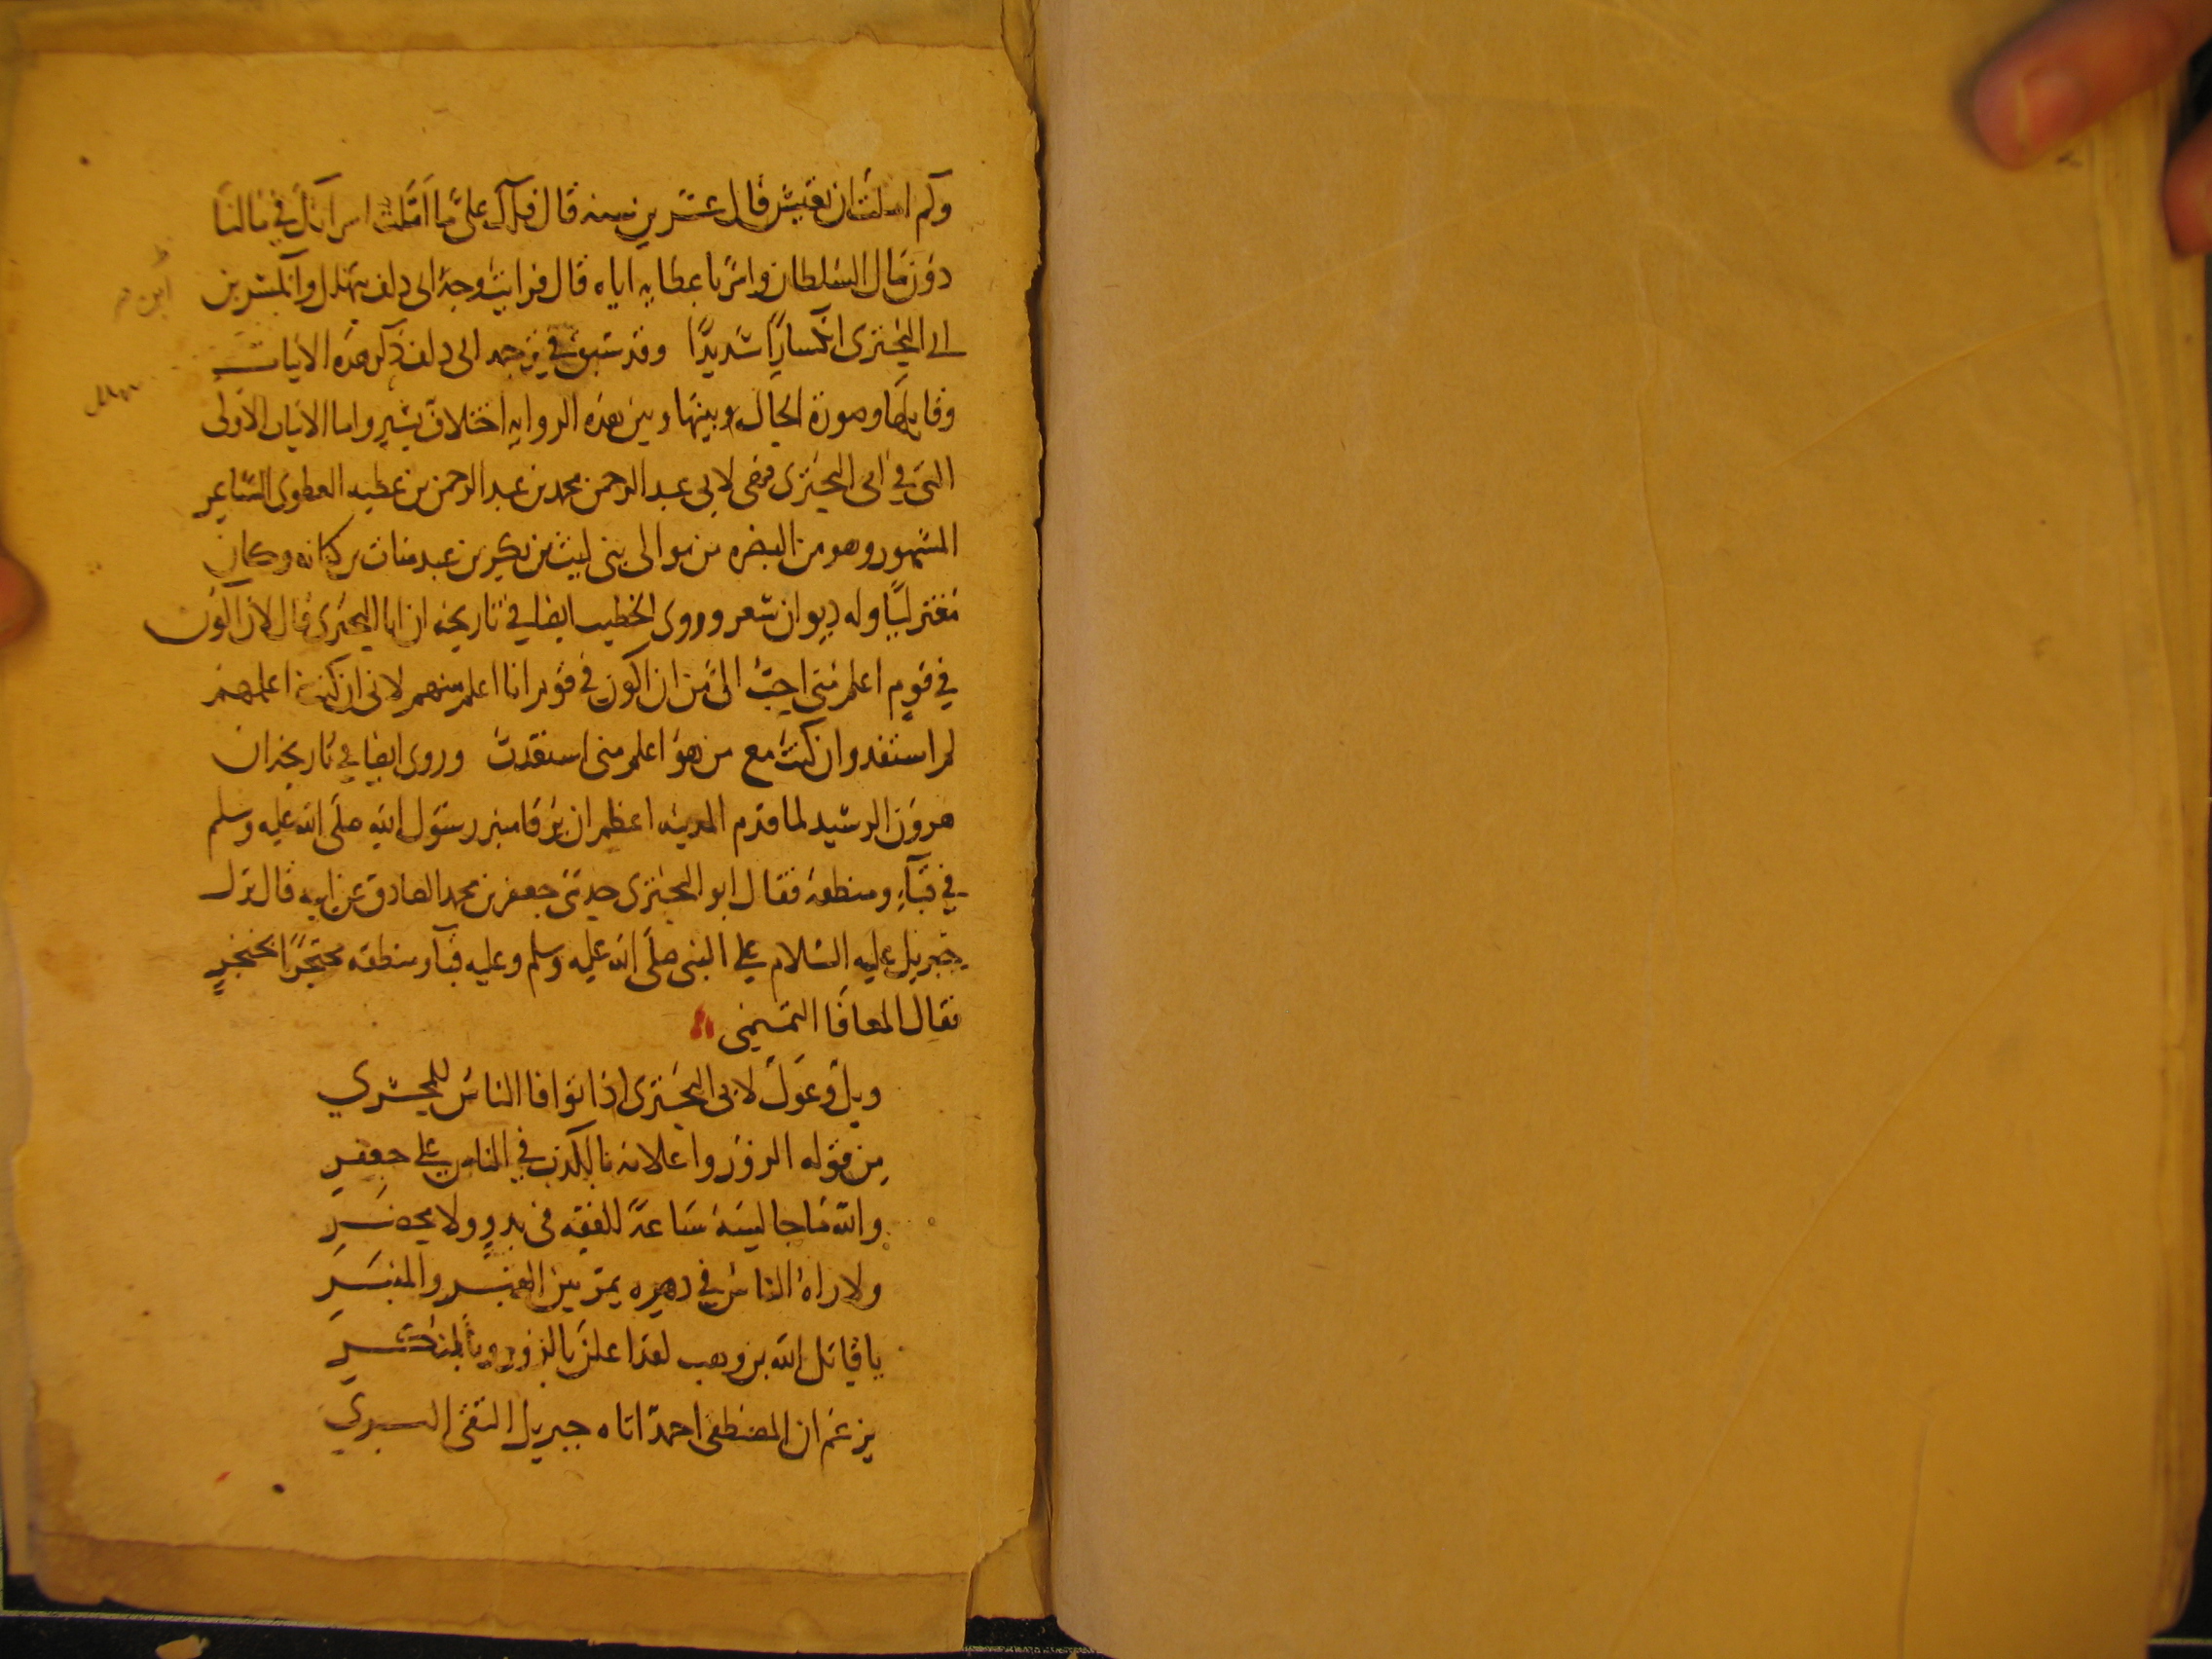 وكم املت ان تعيش قال عشرين سنه قال فلك على ما املت اسرائل في مالنا
دون مال السلطان وامر باعطايه اياه قال فرايت وجه ابى دلف يتهلل وانكسر بن
ابى البخترى انكسارا شديدا وقد سبق في ترجمه ابى دلف ذكر هذه الابيات
وقايلها وصورة الحال وبينها وبين هذه الروايه اختلاف يسير واما الابيات الاولى
التى في ابى البخترى فهى لابى عبد الرحمن محمد بن عبد الرحمن بن عطيه العطوى الشاعر
المشهور وهو من البصره من موالى بنى ليث بن بكير بن عبد مناث بن كنانه وكان
معتزليا وله ديوان شعر وروى الخطيب ايضا في تاريخه ان ابا البخترى قال لان اكون
في قوم اعلم منى احب الى من ان اكون في قوم انا اعلم منهم لانى ان كنت اعلمهم
لم استفد وان كنت مع من هو اعلم منى استفدت وروى ايضا في تاريخه ان
هرون الرشيد لما قدم المدينه اعظم ان يرقا منبر رسول الله صلى الله عليه وسلم
في قباء ومنطقه فقال ابو البخترى حدثنى جعفر بن محمد الصادق عن ابيه قال نزل
جبريل عليه السلام على النبى صلى الله عليه وسلم وعليه قبآ ومنطقه محتجزا بخنجر
فقال المعافا التميمى
ويل وعول لابى البخترى اذا توافا الناس للمحشري
من قوله الزور واعلانه بالكذب في الناس على جعفر
والله ما جالسه ساعة للفقه فى بدو ولا محضر
ولا راه الناس في دهره يمر بين القبر والمنبر
يا قاتل الله بن وهب لقد اعلن بالزور وبالمنكر
يزعم ان المصطفى احمد اتاه جبريل التقى السري